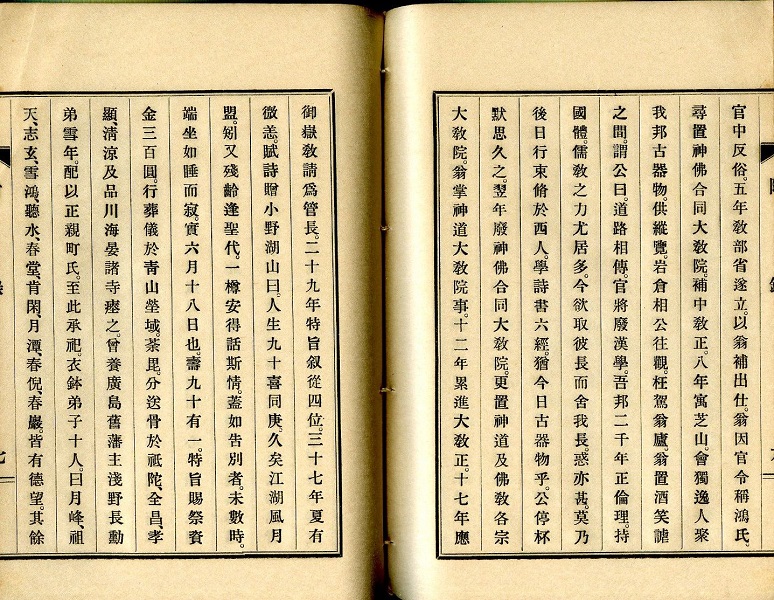 官中反俗。五年教部省遂立。以翁補出仕。翁因官令稱鴻氏。
尋置神佛合同大教院。補中教正。八年寓芝山。會獨逸人聚
我邦古器物。供縱覽。岩倉相公往觀。枉駕翁廬。翁置酒笑謔
之間。謂公曰。道路相傳。官將廢漢學。吾邦二千年正倫理。持
國體。儒教之力尤居多。今欲取彼長而舍我長。惑亦甚。莫乃
後日行束脩於西人。學詩書六經。猶今日古器物乎。公停杯
默思久之。翌年廢神佛合同大教院。更置神道及佛教各宗
大教院。翁掌神道大教院事。十二年累進大教正。十七年應
御嶽教請爲管長。二十九年特旨叙從四位。三十七年夏有
微恙。賦詩贈小野湖山曰。人生九十喜同庚。久矣江湖風月
盟。矧又殘齡逢聖代。一樽安得話斯情。蓋如告別者。未數時。
端坐如睡而寂。實六月十八日也。壽九十有一。特旨賜祭資
金三百圓。行葬儀於青山塋域。荼毘。分送骨於祇陀、全昌、孝
顯、清涼及品川海晏諸寺瘞之。曾養廣島舊藩主淺野長勳
弟雪年。配以正親町氏。至此承祀。衣鉢弟子十人。曰月峰、祖
天、志玄、雪鴻、聽水、春堂、肯閑、月潭、春倪、春巖。皆有德望。其餘